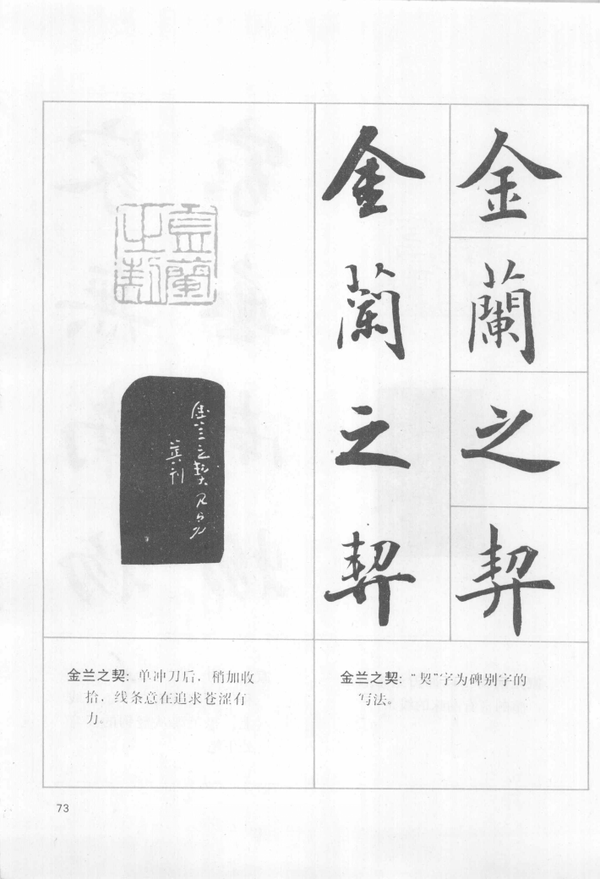 金蘭之契
金蘭之契
金蘭
之契
金兰之契
金兰之契：单冲刀后，稍加收
拾，线条意在追求苍涩有
力。
金兰之契：“契”字为碑别字的
写法。
73